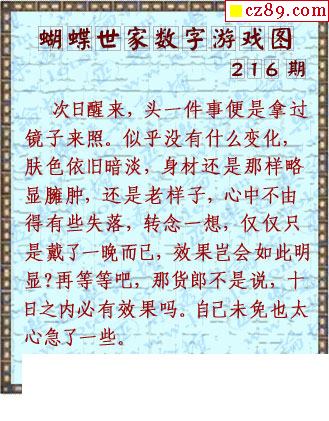 cz89.com
蝴蝶世家数字游戏图
216期
次日醒来，头一件事便是拿过
镜子来照。似乎没有什么变化，
肤色依旧暗淡，身材还是那样略
显臃肿，还是老样子，心中不由
得有些失落，转念一想，仅仅只
是戴了一晚而已，效果岂会如此明
显?再等等吧，那货郎不是说，十
日之内必有效果吗。自己未免也太
心急了一些。